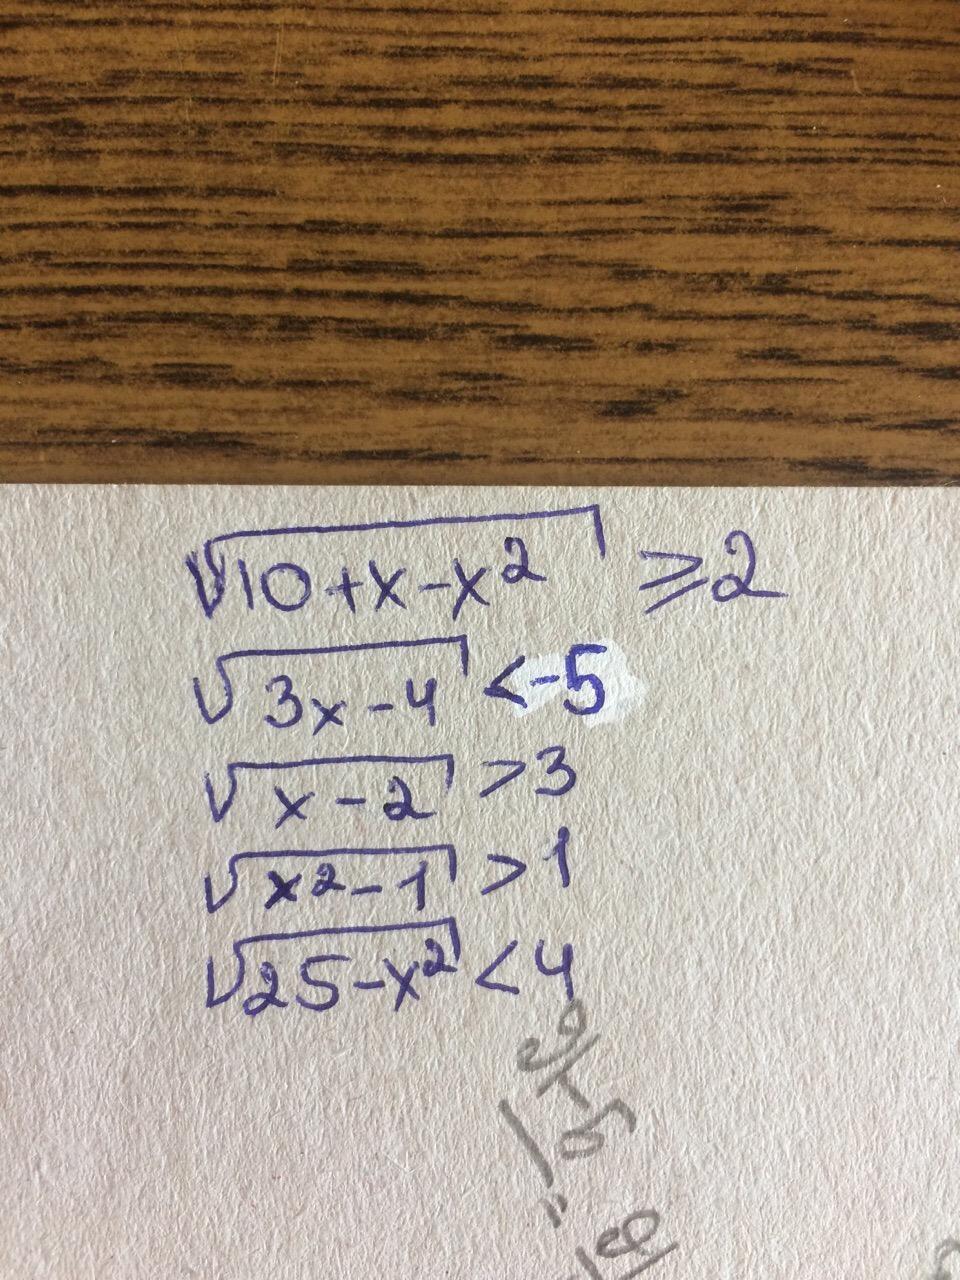 √10+x-x² ⩾2
√3x-4 <-5
√x-2 >3
√x²-1 >1
√25-x² <4